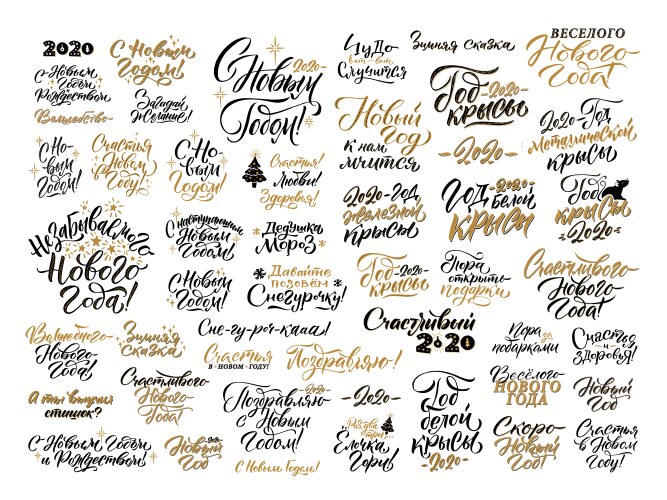 2020
С Новым
Годом
Рождеством
Волшебство
С Новым
Годом!
Загадай
Желание!
С Новым
2020
Годом!
Чудо
вот-вот
Случится
Зимняя сказка
ВЕСЕЛОГО
Нового
Года!
Год
крысы
Новый
год
к нам
мчится
-2020-
2020-Год
Металлической
крысы
С Но-
вым
Годом!
Счастья
в Новом
Году!
С Но-
вым
Годом!
Счастья!
Любви!
Здоровья!
2020-год
железной
крысы
Год -2020-
белой
крысы
Год
крысы
-2020-
Незабываемого
Нового
Года!
С наступающим
Новым
Годом!
Дедушка
Мороз
С Новым
Годом!
Давайте
позовём
Снегурочку!
Год -2020-
крысы
Пора
открыть
подарки
Счастливого
Нового
Года!
Волшебного
Нового
Года!
Зимняя
Сказка
Сне-гу-роч-кааа!
Счастья
В НОВОМ ГОДУ!
Поздравляю!
Счастливый
2020
Пора за
подарками
Счастья
и
Здоровья!
А ты выучил
стишок?
Счастливого
Нового
Года!
Поздравляю
2020
с Новым
Годом!
-2020-
Раз, два
три...
Ёлочка
Гори!
Год
белой
крысы
-2020-
Весёлого
НОВОГО
ГОДА
Новый
Год
С Новым Годом
и Рождеством!
Новый
2020
Год
С Новым Годом!
Скоро
Новый
Год!
Счастья
в Новом
Году!